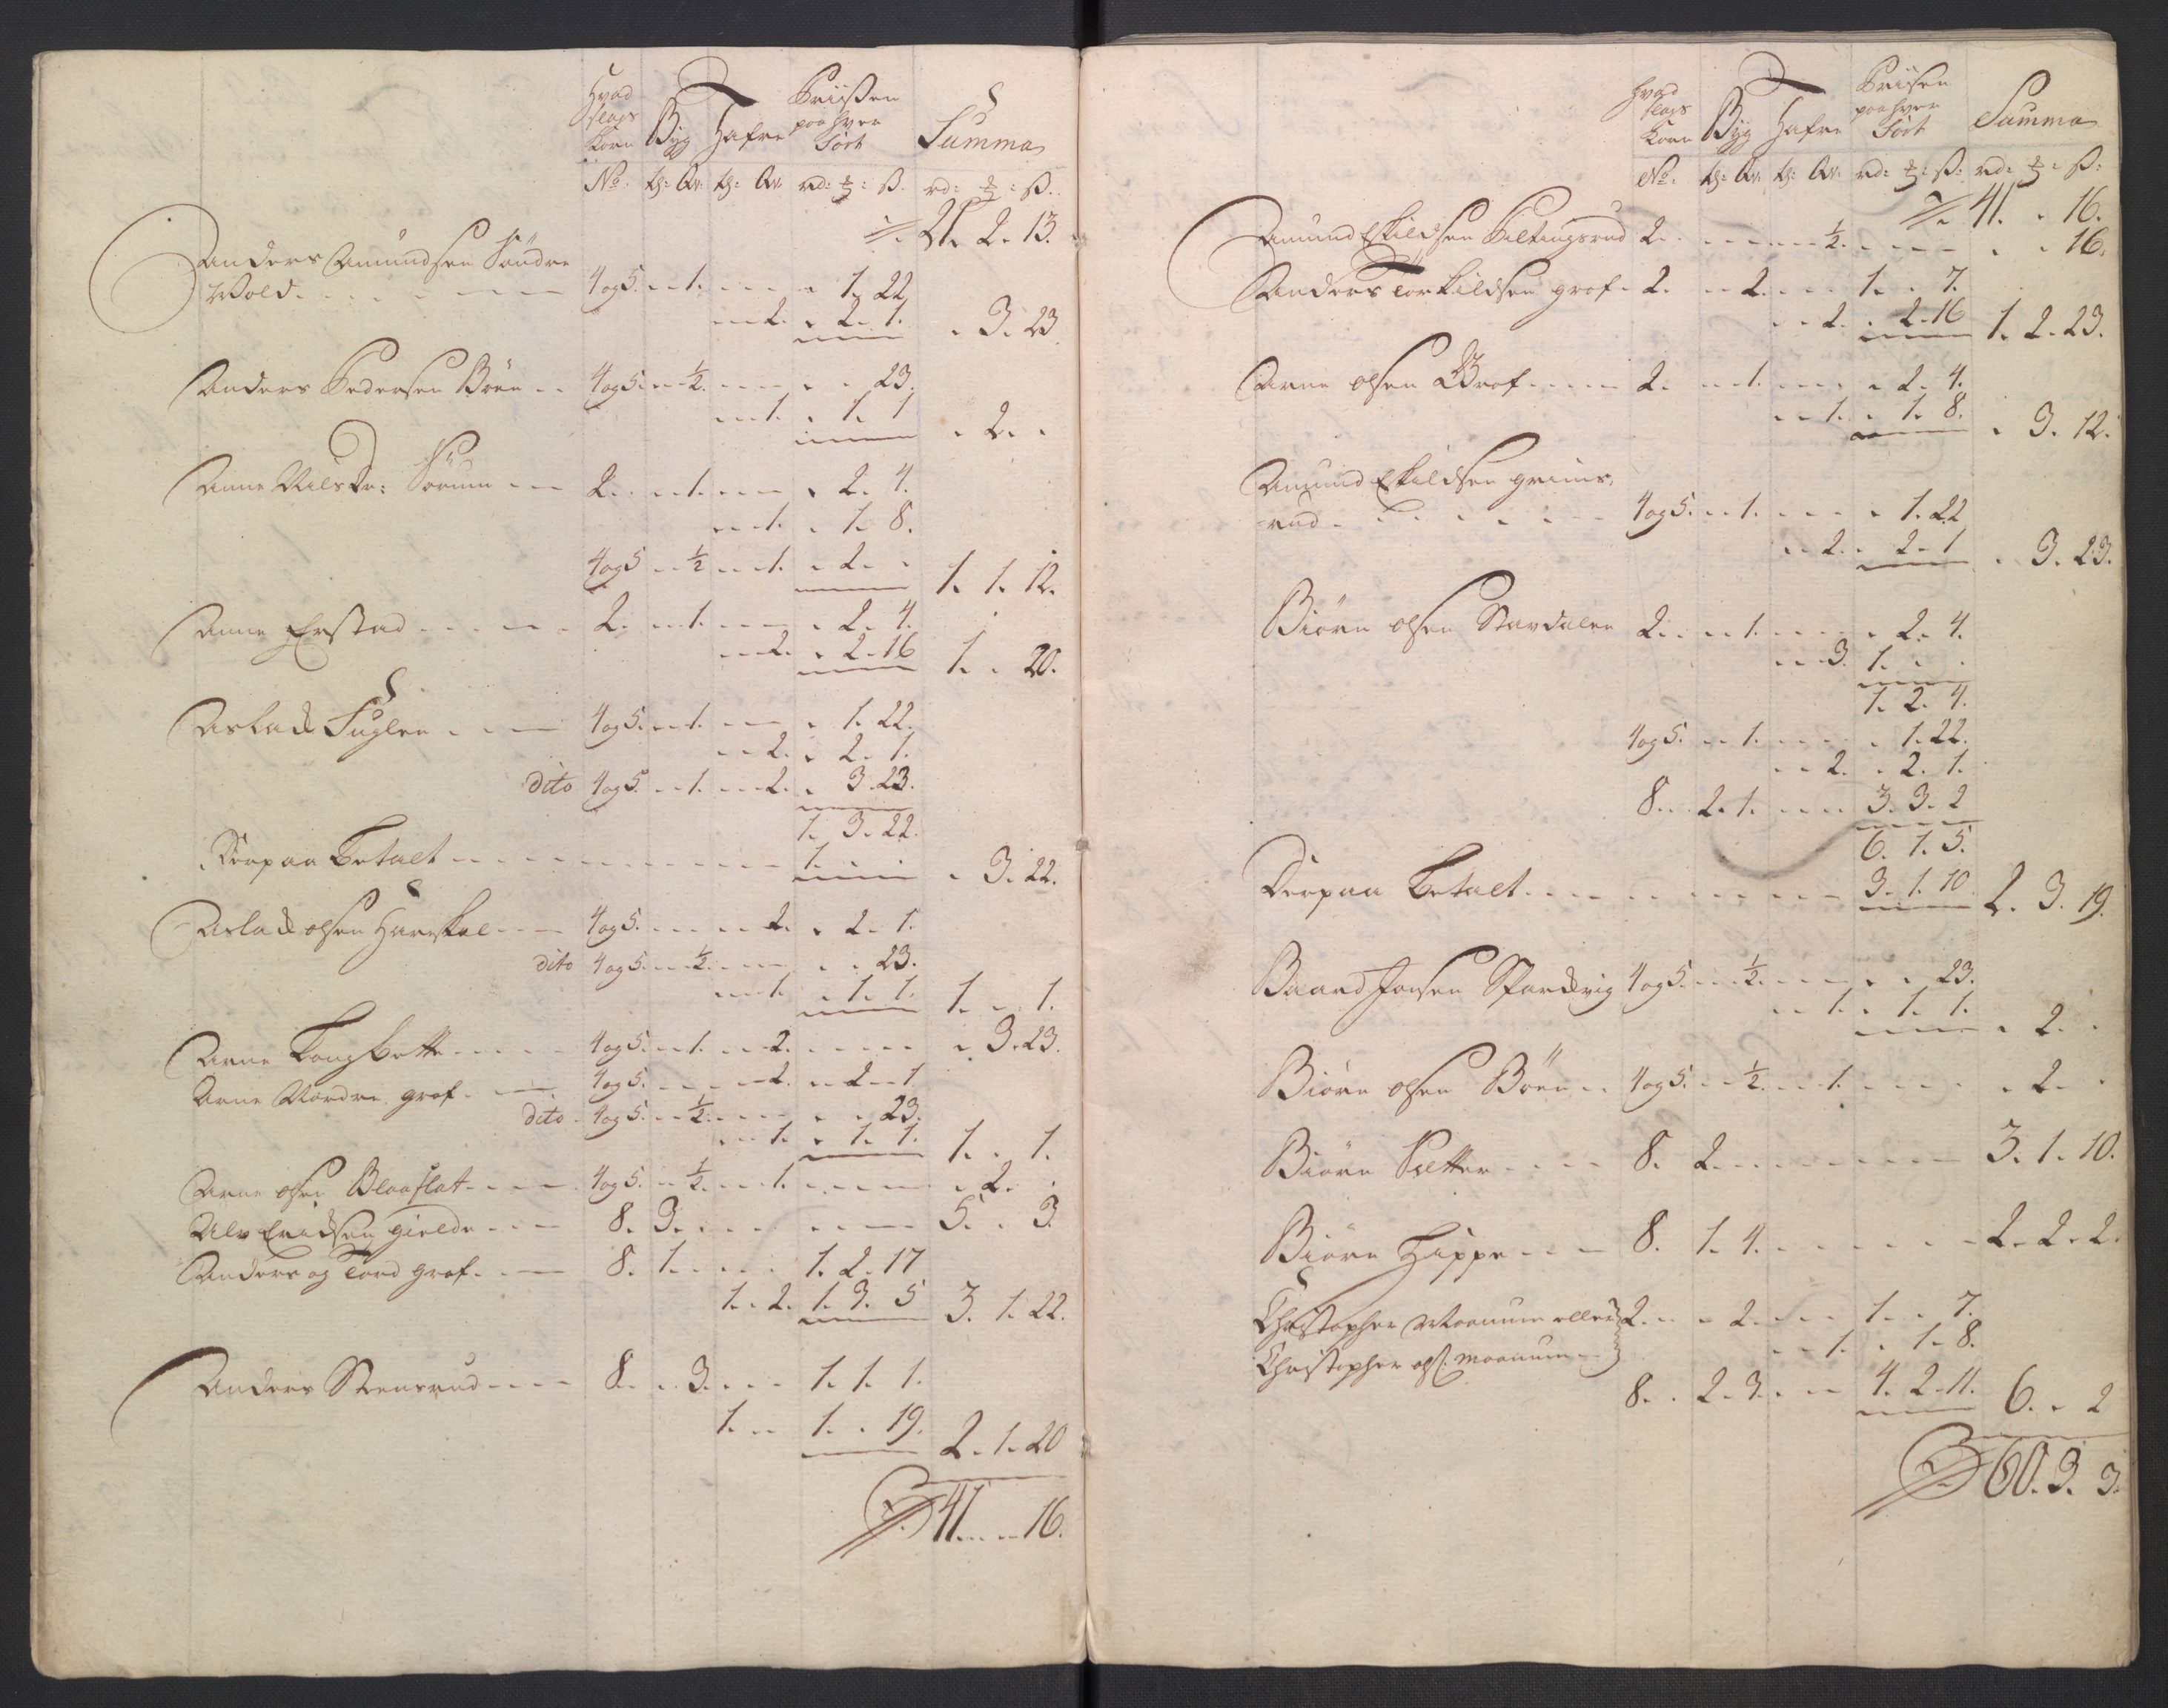 Hvad slags Korn Byg Hafre Priisen paa hver Sort Summa
No. tǿ: Qr: tǿ: Qr. rd: ₰: ß. rd: ₰: ß.
21. 2. 13.
Anders Amundsen Söndre
Wold 4 og 5. 1. 1. 22
2. 2. 1. 3. 23
Anders Pedersen Böen 4 og 5. ½. 23.
1. 1. 1 2.
Anne Nilsdr: Sörum 2. 1. 2. 4.
1. 1. 8.
4 og 5 ½ 1. 2. 1. 1. 12.
Anne Erstad 2. 1. 2. 4.
2. 2. 16 1. 20.
Aslack Fuglen 4 og 5. 1. 1. 22.
2. 2. 1.
dito 4 og 5. 1. 2. 3. 23.
1. 3. 22.
Derpaa Betalt 1. 3. 22.
Aslack olsen 4 og 5. 2. 2. 1.
dito 4 og 5. ½. 23.
1. 1. 1. 1. 1.
Arne 4 og 5. 1. 2. 3. 23.
Arne Nordre grof 4 og 5. 2. 2. 1
dito 4 og 5. ½. 23.
1. 1. 1. 1. 1.
Arne olsen Blaaflat 4 og 5. ½. 1. 2.
Alv Eridsen gielde 8. 3. 5. 3
Anders og Tord grof. 8. 1. 1. 2. 17
1. 2. 1. 3. 5 3. 1. 22.
Anders Stensrud 8. 3. 1. 1. 1.
1. 1. 19. 2. 1. 20
41. 16.
Hvad slags Korn Byg Hafre Priisen paa hver Sort Summa
No. tǿ: Qr: tǿ: Qr. rd: ₰: ß: rd: ₰: ß:
41. 16.
Amund Eskildsen Kiltingsrud 2. ½. 16.
Anders Torkildsen grof. 2. 2. 1. 7.
2. 2. 16 1. 2. 23.
Arne olsen Grof 2. 1. 2. 4.
1. 1. 8. 3. 12.
Amund Eskildsen grims-
rud 4 og 5. 1. 1. 22
2. 2. 1 3. 23.
Biörn olsen Stavdalen 2. 1. 2. 4.
3 1.
1. 2. 4.
4 og 5. 1. 1. 22.
2. 2. 1.
8. 2. 1. 3. 3. 2
6. 1. 5.
Derpaa Betalt 3. 1. 10 2. 3. 19.
Baard Jonsen 4 og 5. ½. 23.
1. 1. 1. 2.
Biörn olsen Böen 4 og 5. ½. 1. 2.
Biörn Sætter 8. 2. 3. 1. 10.
Biörn Hippe 8. 1. 4. 2. 2. 2.
Christopher Moanum eller 2. 2. 1. 7.
Christopher ols: Moanum 1. 1. 8.
8. 2. 3. 4. 2. 11. 6. 2
60. 3. 3.